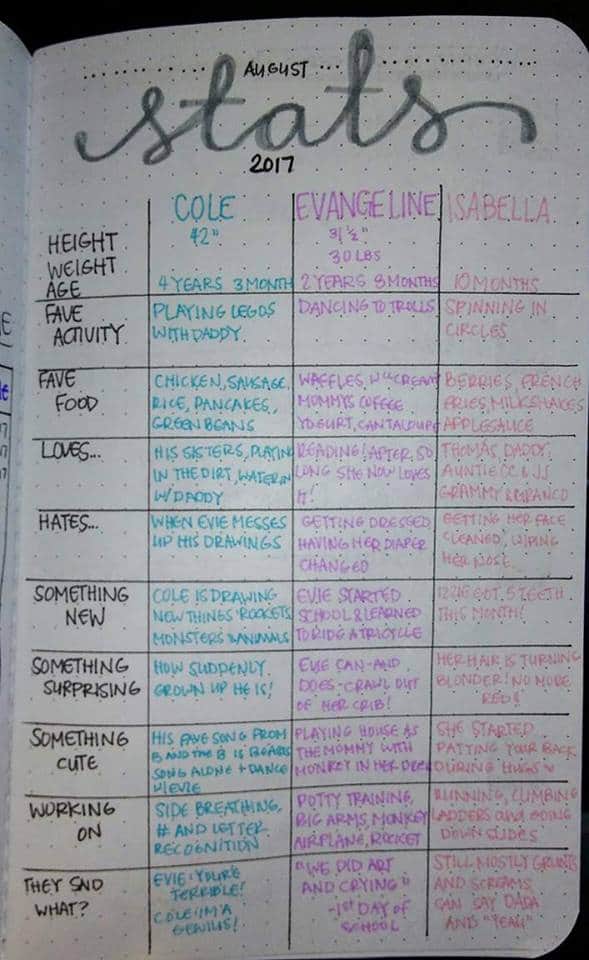 AUGUST
stats
2017
COLE EVANGELINE ISABELLA
HEIGHT 42" 31½"
WEIGHT 30 LBS
AGE 4 YEARS 3 MONTH 2 YEARS 8 MONTHS 10 MONTHS
FAVE PLAYING LEGOS DANCING TO TROLLS SPINNING IN
ACTIVITY WITH DADDY CIRCLES
FAVE CHICKEN, SAUSAGE, WAFFLES, CREAM BERRIES, FRENCH
FOOD RICE, PANCAKES, MOMMYS COFFEE FRIES, MILKSHAKES
GREEN BEANS YOGURT, CANTALOUPE APPLESAUCE
LOVES... HIS SISTERS, PLAYING READING! AFTER SO THOMAS, DADDY,
IN THE DIRT, LONG SHE NOW LOVES AUNTIE CC & JJ
W/DADDY IT! GRAMMY &
HATES... WHEN EVIE MESSES GETTING DRESSED, GETTING HER FACE
UP HIS DRAWINGS HAVING HER DIAPER CLEANED, WIPING
CHANGED HER NOSE
SOMETHING COLE IS DRAWING EVIE STARTED GOT 5 TEETH
NEW NEW THINGS ROCKETS SCHOOL & LEARNED THIS MONTH!
MONSTERS & ANIMALS TO RIDE A TRICYCLE
SOMETHING HOW SUDDENLY EVIE CAN-AND HER HAIR IS TURNING
SURPRISING GROWN UP HE IS! DOES-CRAWL OUT BLONDER! NO MORE
OF HER CRIB! RED!
SOMETHING HIS FAVE SONG FROM PLAYING HOUSE AS SHE STARTED
CUTE B AND THE B IS THE MOMMY WITH PATTING YOUR BACK
SONG ALONE + DANCE MONKEY IN HER DURING HUGS
W/EVIE
WORKING SIDE BREATHING, POTTY TRAINING, RUNNING, CLIMBING
ON # AND LETTER BIG ARMS, MONKEY LADDERS and GOING
RECOGNITION AIRPLANE, ROCKET DOWN SLIDES
THEY SAID EVIE: YOU'RE "WE DID ART STILL MOSTLY GRUNTS
WHAT? TERRIBLE! AND CRYING" AND SCREAMS
COLE: IM A -1ST DAY OF CAN SAY DADA
GENIUS! SCHOOL AND "YEAH"